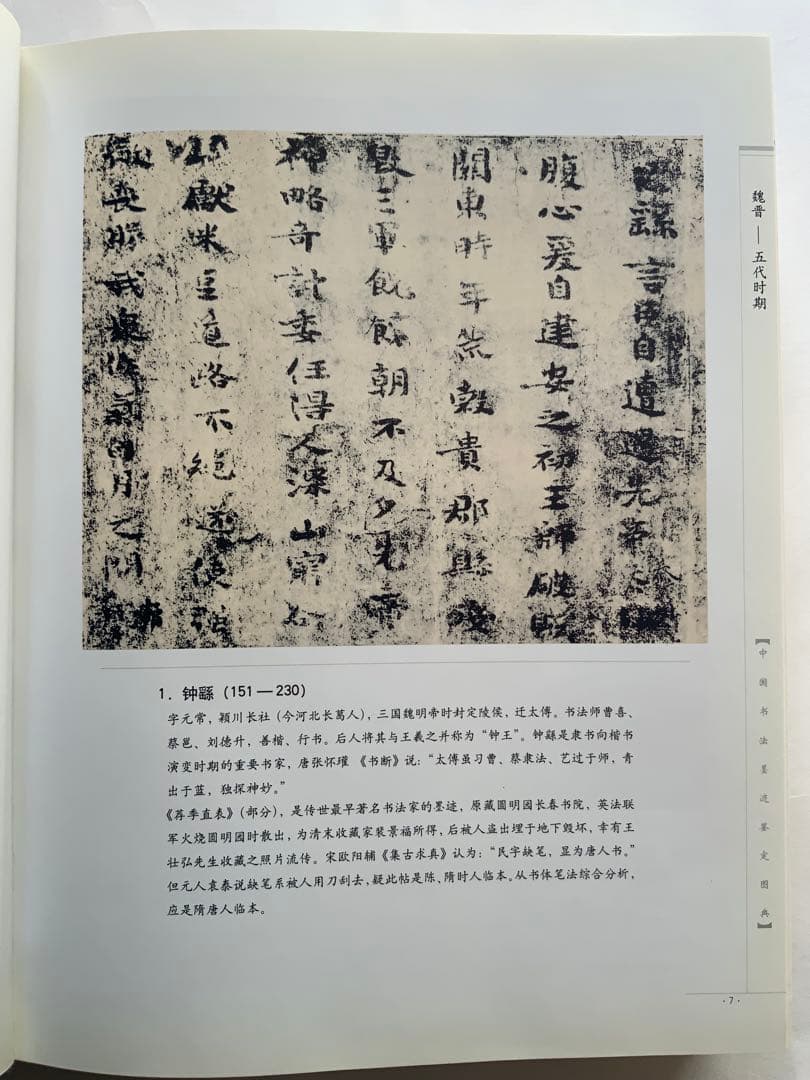 臣繇言臣自遭遇先帝忝列
腹心爰自建安之初王師破賊
關東時年荒穀貴郡縣殘
毀三軍餽饟朝不及夕先帝
神略奇計委任得人深山窮谷
民獻米豆道路不絕遂使強
敵喪膽我衆作氣旬月之間廓
1. 钟繇（151—230）
字元常，颖川长社（今河北长葛人），三国魏明帝时封定陵侯，迁太傅。书法师曹喜、
蔡邕、刘德升，善楷、行书。后人将其与王羲之并称为“钟王”。钟繇是隶书向楷书
演变时期的重要书家，唐张怀瓘《书断》说：“太傅虽习曹、蔡隶法、艺过于师，青
出于蓝，独探神妙。”
《荐季直表》（部分），是传世最早著名书法家的墨迹，原藏圆明园长春书院，英法联
军火烧圆明园时散出，为清末收藏家裴景福所得，后被人盗出埋于地下毁坏，幸有王
壮弘先生收藏之照片流传。宋欧阳辅《集古求真》认为：“民字缺笔，显为唐人书。”
但元人袁泰说缺笔系被人用刀刮去，疑此帖是陈、隋时人临本。从书体笔法综合分析，
应是隋唐人临本。
魏晋——五代时期
【中国书法墨迹鉴定图典】
·7·